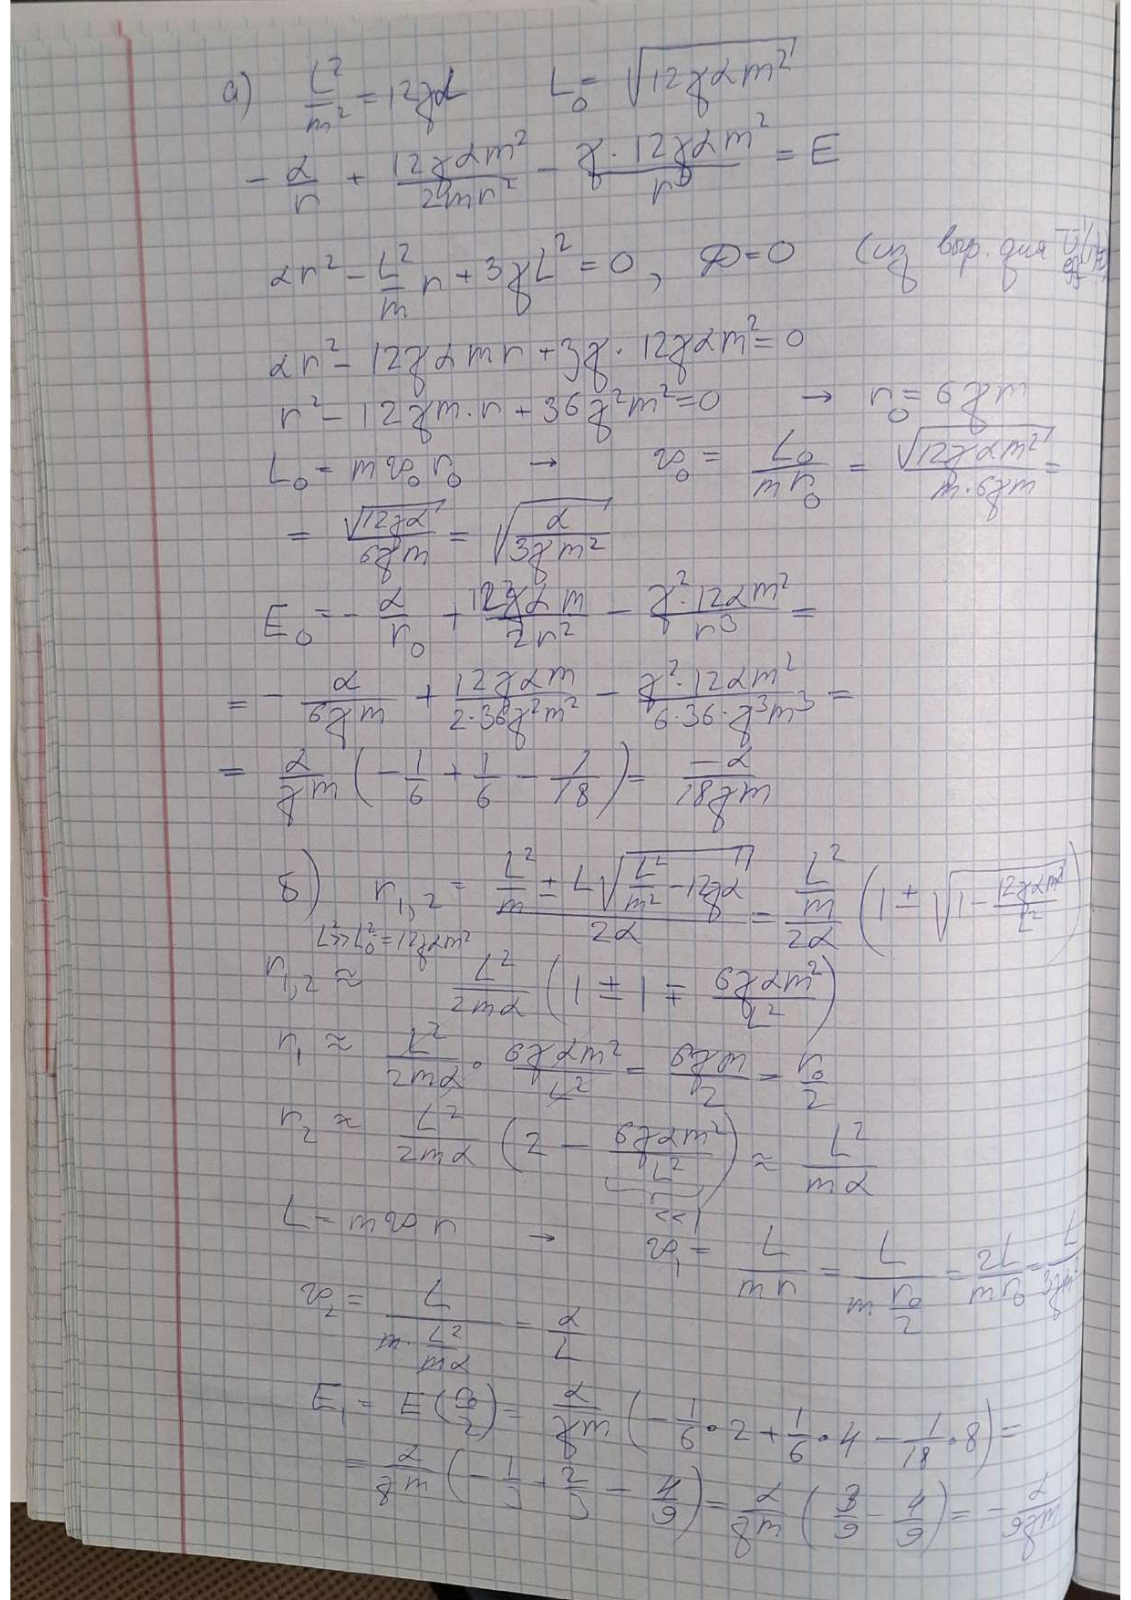 а) L²/m² = 12γα L₀ = √(12γαm²)
- α/r + 12γαm²/2mr² - γ·12γαm²/r³ = E
αr² - L²/m r + 3γL² = 0, D = 0 (из выр. для
αr² - 12γαmr + 3γ·12γαm² = 0
r² - 12γm·r + 36γ²m² = 0 → r₀ = 6γm
L₀ = mv₀r₀ → v₀ = L₀/mr₀ = √(12γαm²)/m·6γm =
= √(12γα)/6γm = √(α/3γm²)
E₀ = - α/r₀ + 12γαm/2r² - γ²·12αm²/r³ =
= - α/6γm + 12γαm/2·36γ²m² - γ²·12αm²/6·36·γ³m³ =
= α/γm (-1/6 + 1/6 - 1/18) = -α/18γm
б) r₁,₂ = (L²/m ± L√(L²/m² - 12γα))/2α = (L²/m)/2α (1 ± √(1 - 12γαm²/L²))
L²>>L₀² = 12γαm²
r₁,₂ ≈ L²/2mα (1 ± 1 ∓ 6γαm²/L²)
r₁ ≈ L²/2mα · 6γαm²/L² = 6γm/2 = r₀/2
r₂ ≈ L²/2mα (2 - 6γαm²/L²) ≈ L²/mα
<<1
L = mvr → v₁ = L/mr = L/(m r₀/2) = 2L/mr₀ = L/3γm²
v₂ = L/(m·L²/mα) = α/L
E₁ = E(r₀/2) = α/γm (-1/6·2 + 1/6·4 - 1/18·8) =
= α/γm (-1/3 + 2/3 - 4/9) = α/γm (3/9 - 4/9) = - α/9γm